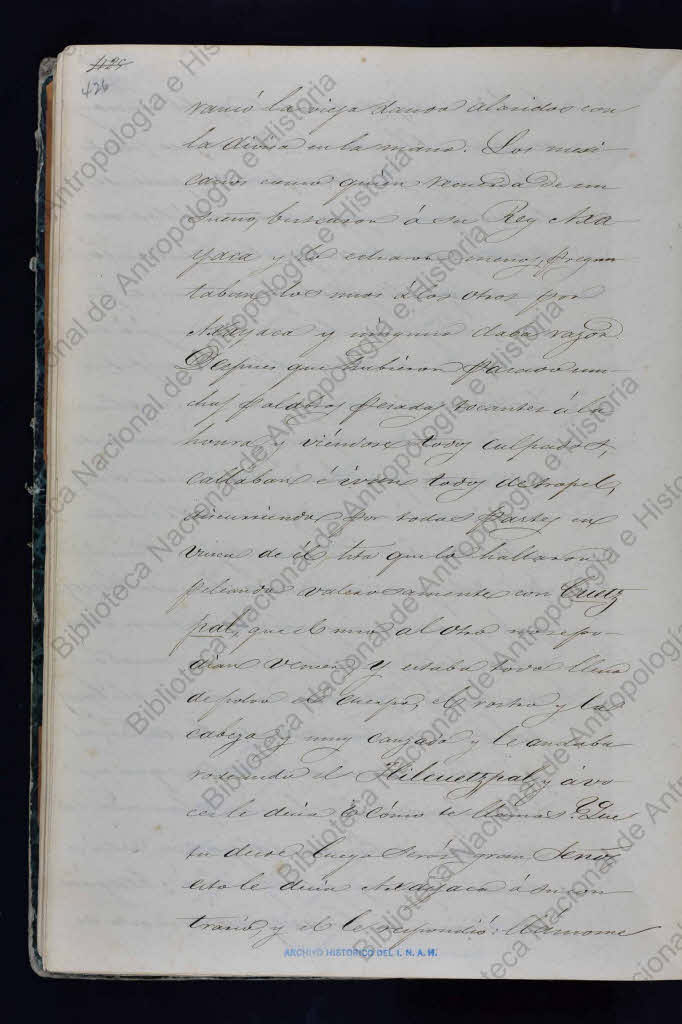 425
426
vanió la vieja dando alaridos con
la divisa en la mano. Los mexi-
canos como quién recuerda de un
sueño, buscaron á su Rey Axa
yaca y lo echaron menos, pregun
taban los unos á los otros por
Axayaca y ninguno daba razón
Despues que hubieron pasado mu-
chas palabras pesadas tocantes á la
honra, y viéndose todos culpados,
callaban é ivan todos de tropel,
discurriendo por todas partes en
vusca de él hta que lo hallaron
peleando valerosamente con Cuetz
pal, que el uno al otro no se po-
dian vencer, y estaba todo lleno
de polvo el cuerpo, el rostro y la
cabeza y muy canzado y le andaba
rodeando el Hilcuetzpal, y á vo
ces le decia ¿cómo te llamas? Que
tu dices luego serás gran Señor
esto le decia Axayaca á su con
trario, y el le respondió: llámome
ARCHIVO HISTORICO DEL I. N. A. H.
Biblioteca Nacional de Antropología e Historia